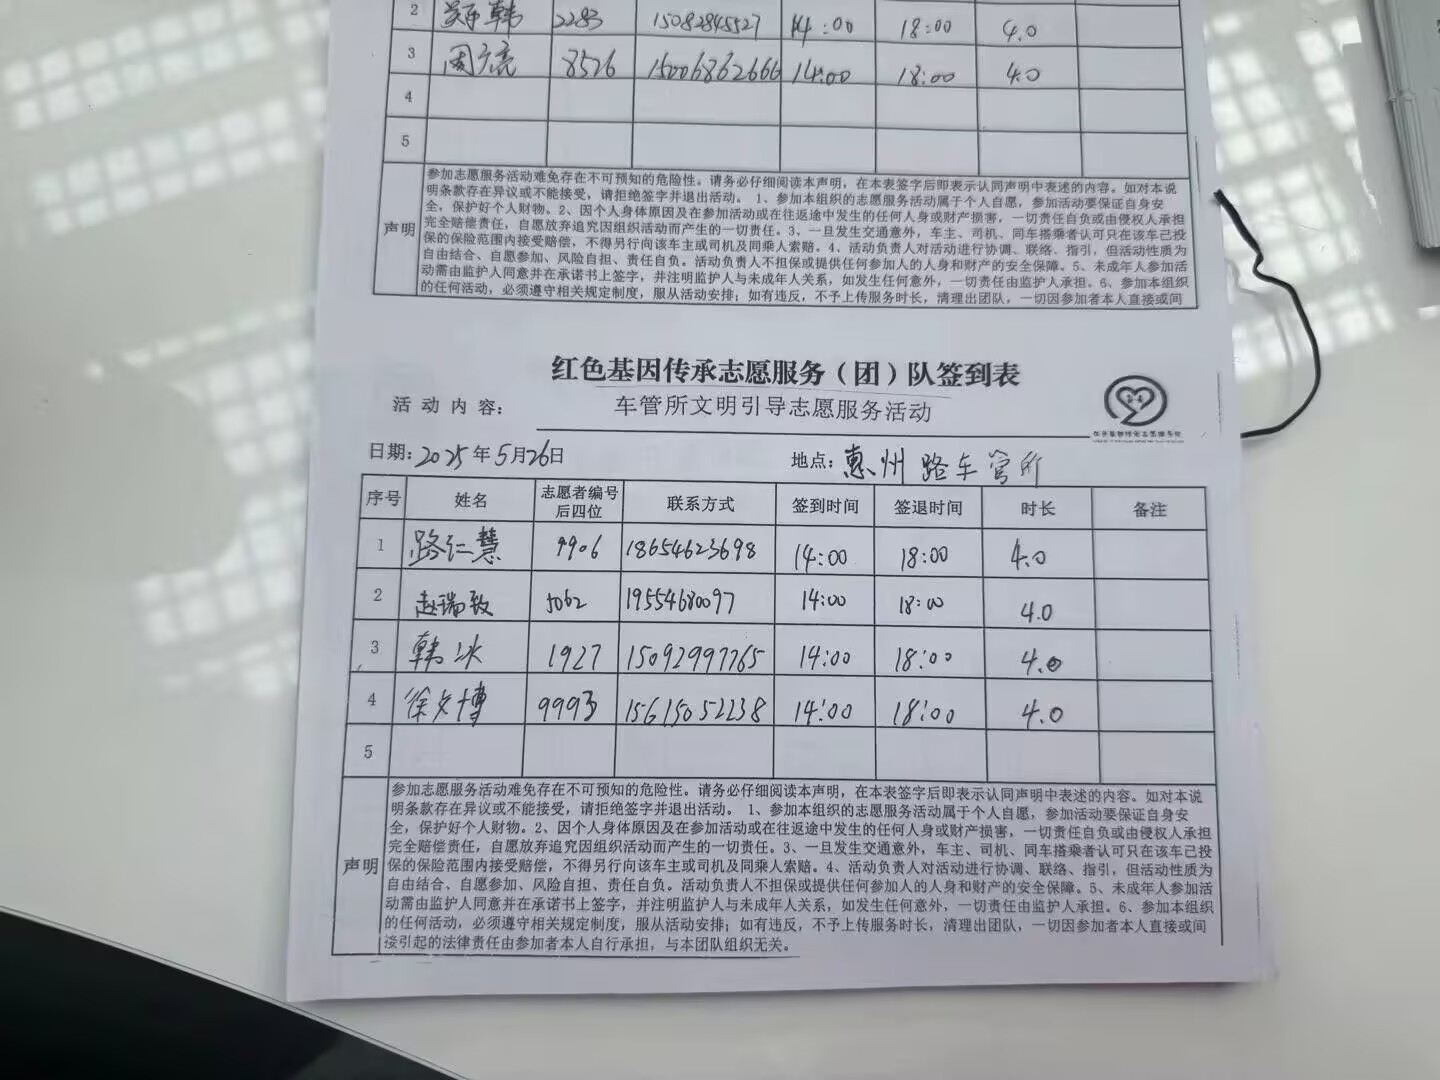 2 韩 2283 15082845527 14:00 18:00 4.0
3 周亮 8526 15006862666 14:00 18:00 4.0
4
5
声明
参加志愿服务活动难免存在不可预知的危险性。请务必仔细阅读本声明，在本表签字后即表示认同声明中表述的内容。如对本说
明条款存在异议或不能接受，请拒绝签字并退出活动。 1、参加本组织的志愿服务活动属于个人自愿，参加活动要保证自身安
全，保护好个人财物。2、因个人身体原因及在参加活动或在往返途中发生的任何人身或财产损害，一切责任自负或由侵权人承担
完全赔偿责任，自愿放弃追究因组织活动而产生的一切责任。3、一旦发生交通意外，车主、司机、同车搭乘者认可只在该车已投
保的保险范围内接受赔偿，不得另行向该车主或司机及同乘人索赔。4、活动负责人对活动进行协调、联络、指引，但活动性质为
自由结合、自愿参加、风险自担、责任自负。活动负责人不担保或提供任何参加人的人身和财产的安全保障。5、未成年人参加活
动需由监护人同意并在承诺书上签字，并注明监护人与未成年人关系，如发生任何意外，一切责任由监护人承担。6、参加本组织
的任何活动，必须遵守相关规定制度，服从活动安排；如有违反，不予上传服务时长，清理出团队，一切因参加者本人直接或间
红色基因传承志愿服务（团）队签到表
活动内容： 车管所文明引导志愿服务活动
日期：2025年5月26日 地点：惠州路车管所
序号 姓名 志愿者编号后四位 联系方式 签到时间 签退时间 时长 备注
1 路仁慧 9906 18654623698 14:00 18:00 4.0
2 赵瑞敏 5062 19554680097 14:00 18:00 4.0
3 韩冰 1927 15092997765 14:00 18:00 4.0
4 徐文博 9993 15615052238 14:00 18:00 4.0
5
声明
参加志愿服务活动难免存在不可预知的危险性。请务必仔细阅读本声明，在本表签字后即表示认同声明中表述的内容。如对本说
明条款存在异议或不能接受，请拒绝签字并退出活动。 1、参加本组织的志愿服务活动属于个人自愿，参加活动要保证自身安
全，保护好个人财物。2、因个人身体原因及在参加活动或在往返途中发生的任何人身或财产损害，一切责任自负或由侵权人承担
完全赔偿责任，自愿放弃追究因组织活动而产生的一切责任。3、一旦发生交通意外，车主、司机、同车搭乘者认可只在该车已投
保的保险范围内接受赔偿，不得另行向该车主或司机及同乘人索赔。4、活动负责人对活动进行协调、联络、指引，但活动性质为
自由结合、自愿参加、风险自担、责任自负。活动负责人不担保或提供任何参加人的人身和财产的安全保障。5、未成年人参加活
动需由监护人同意并在承诺书上签字，并注明监护人与未成年人关系，如发生任何意外，一切责任由监护人承担。6、参加本组织
的任何活动，必须遵守相关规定制度，服从活动安排；如有违反，不予上传服务时长，清理出团队，一切因参加者本人直接或间
接引起的法律责任由参加者本人自行承担，与本团队组织无关。